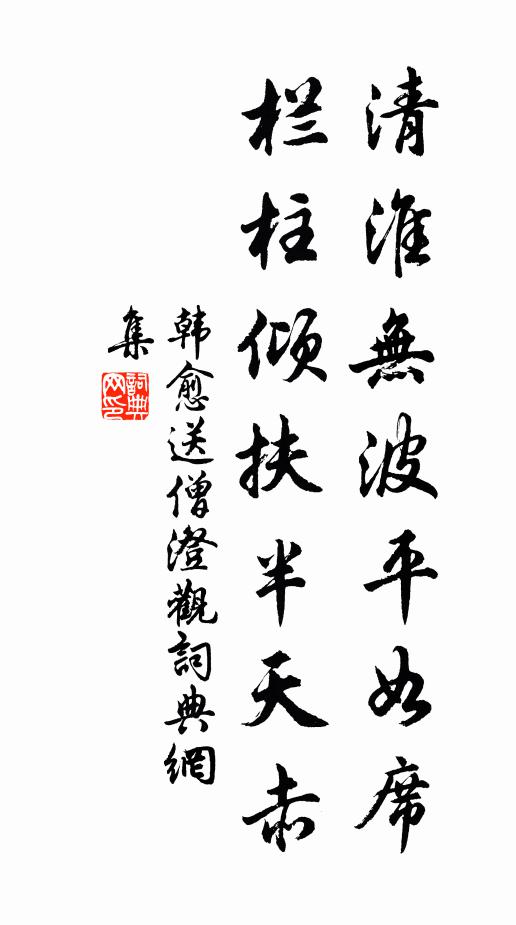 清淮無波平如席
栏柱倾扶半天赤
韩愈送僧澄觀詞典網
集
詞典
网印